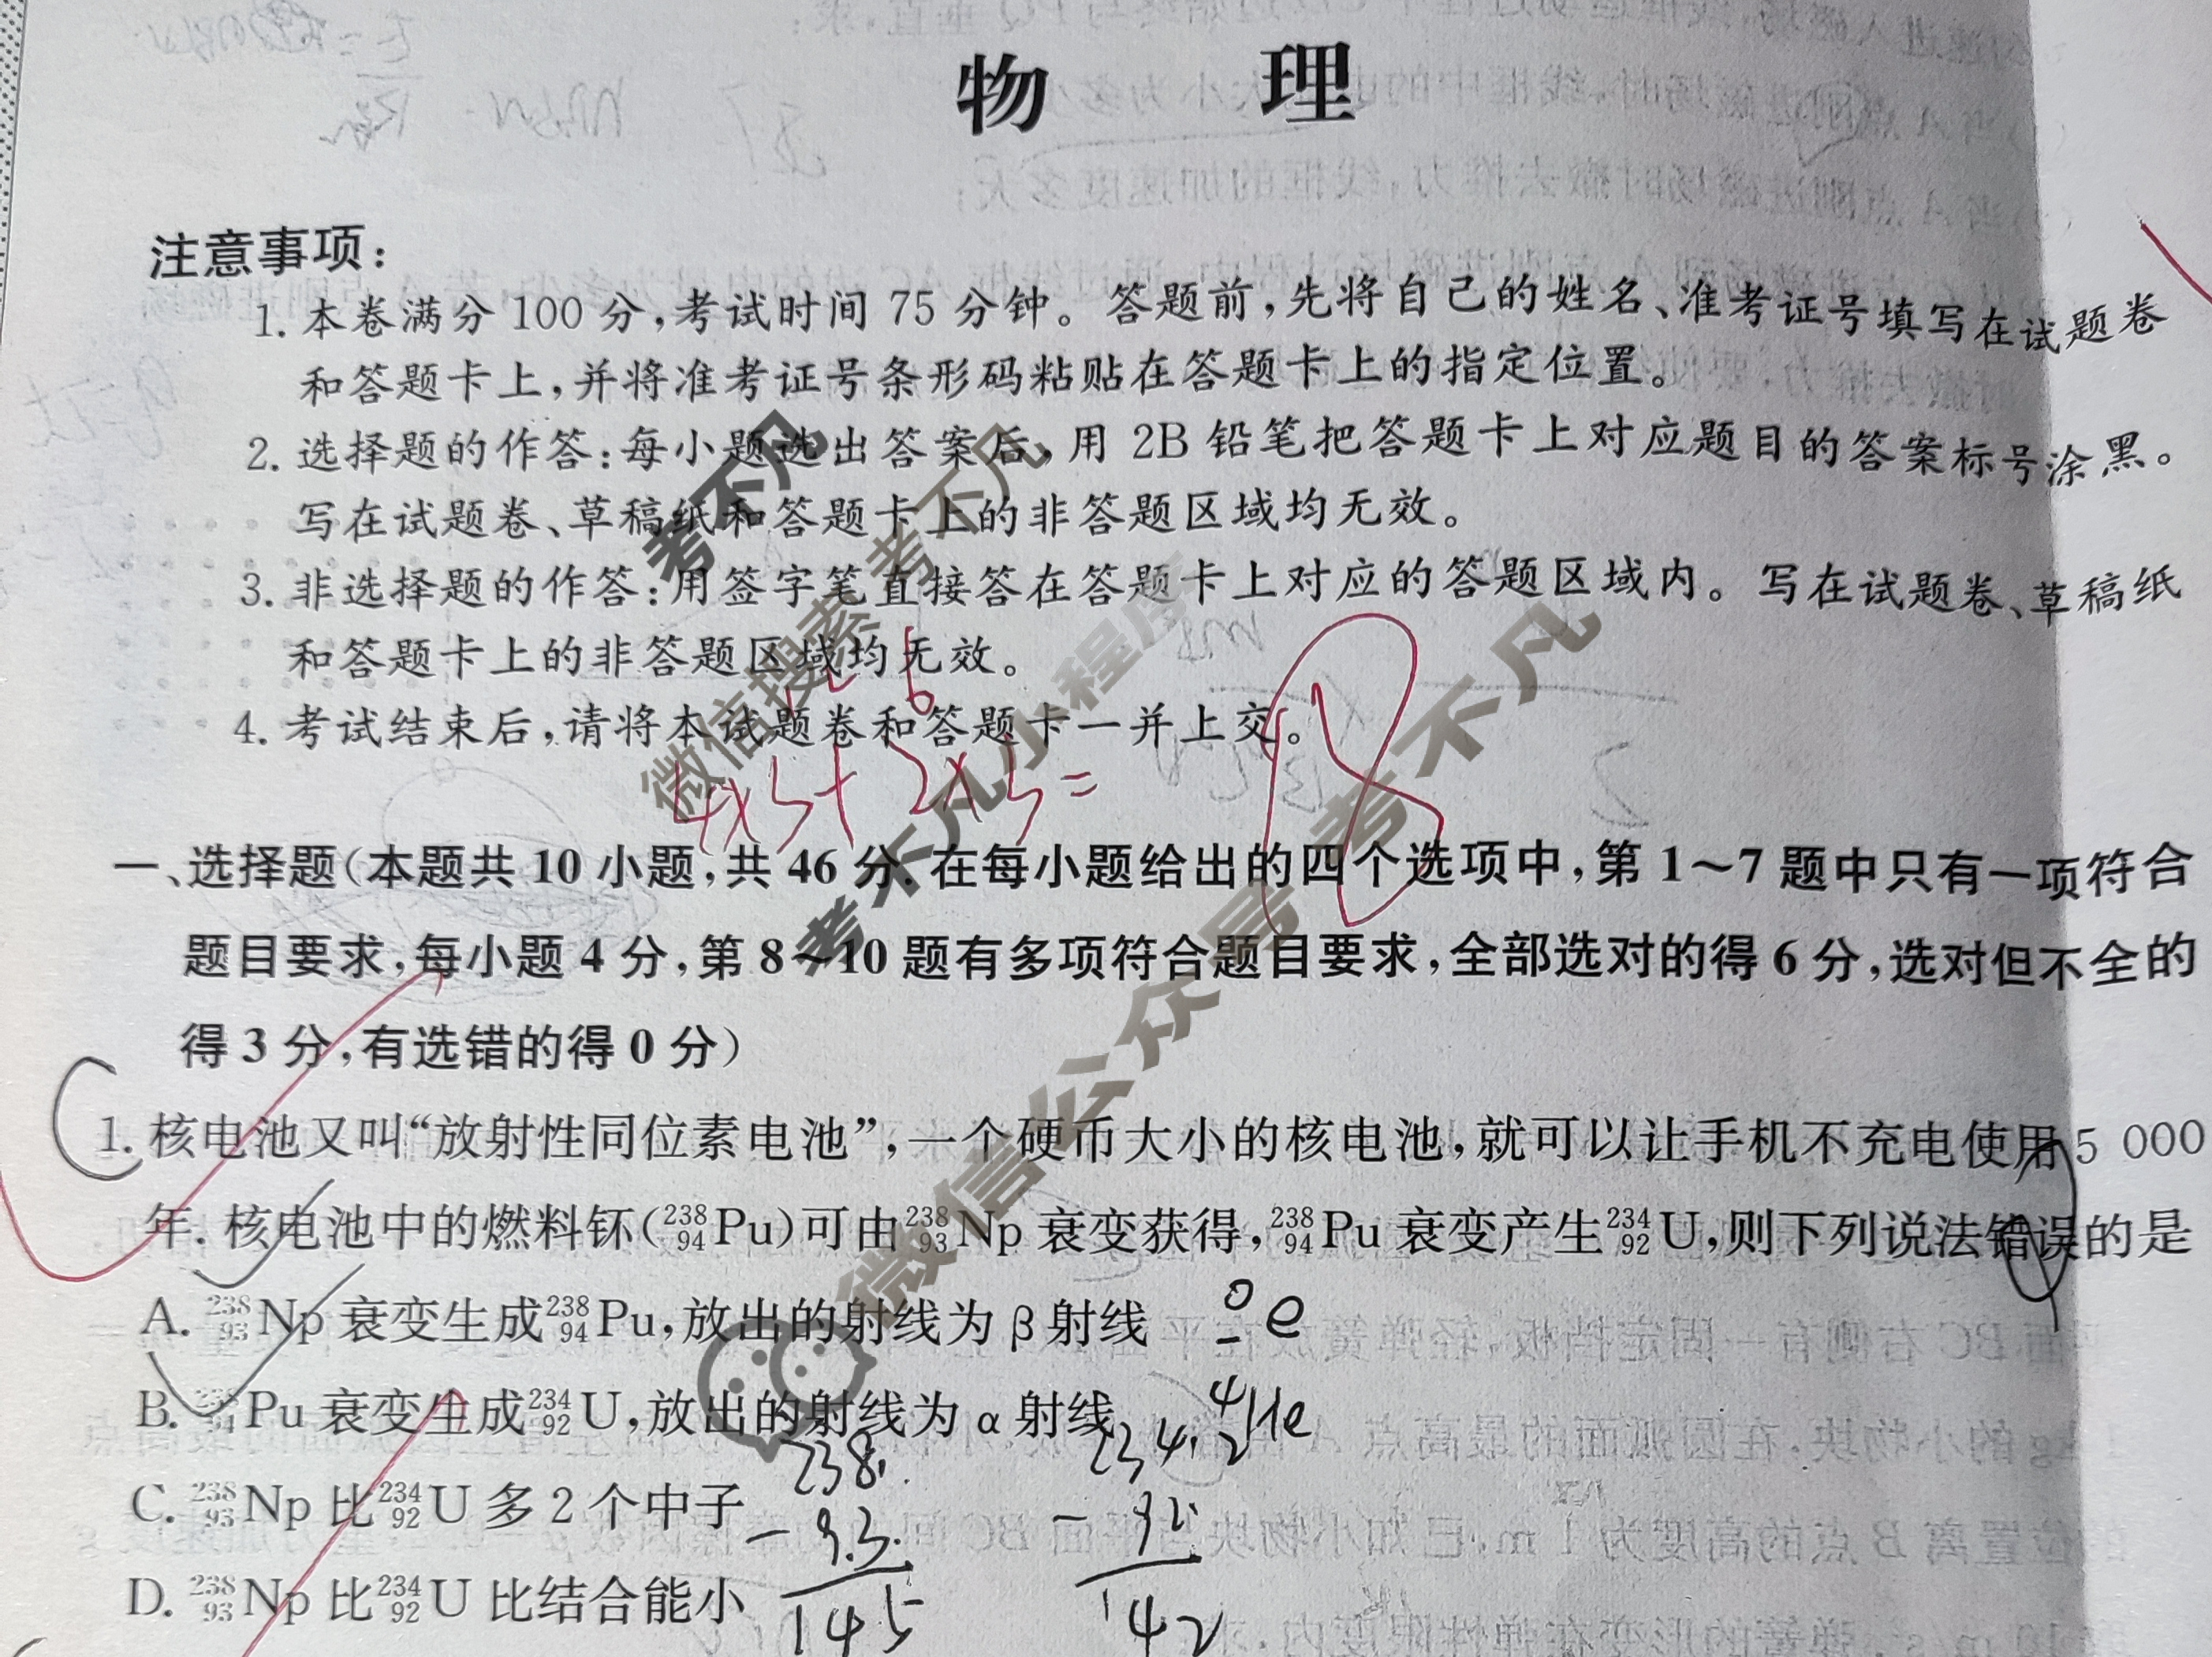 物 理
注意事项:
1. 本卷满分 100 分,考试时间 75 分钟。答题前,先将自己的姓名、准考证号填写在试题卷
和答题卡上,并将准考证号条形码粘贴在答题卡上的指定位置。
2. 选择题的作答:每小题选出答案后,用 2B 铅笔把答题卡上对应题目的答案标号涂黑。
写在试题卷、草稿纸和答题卡上的非答题区域均无效。
3. 非选择题的作答:用签字笔直接答在答题卡上对应的答题区域内。写在试题卷、草稿纸
和答题卡上的非答题区域均无效。
4. 考试结束后,请将本试题卷和答题卡一并上交。
12 6
4×3+2×3= 18
一、选择题(本题共 10 小题,共 46 分. 在每小题给出的四个选项中,第 1~7 题中只有一项符合
题目要求,每小题 4 分,第 8~10 题有多项符合题目要求,全部选对的得 6 分,选对但不全的
得 3 分,有选错的得 0 分)
1. 核电池又叫“放射性同位素电池”,一个硬币大小的核电池,就可以让手机不充电使用 5 000
年. 核电池中的燃料钚(²³⁸₉₄Pu)可由²³⁸₉₃Np 衰变获得,²³⁸₉₄Pu 衰变产生²³⁴₉₂U,则下列说法错误的是
A. ²³⁸₉₃Np 衰变生成²³⁸₉₄Pu,放出的射线为 β 射线 ⁰₋e
B. ²³⁸₉₄Pu 衰变生成²³⁴₉₂U,放出的射线为 α 射线 ⁴₂He
C. ²³⁸₉₃Np 比²³⁴₉₂U 多 2 个中子
D. ²³⁸₉₃Np 比²³⁴₉₂U 比结合能小
238 234
-93 -92
145 142
考不凡
考不凡
微信搜索
考不凡小程序
考不凡
微信公众号 考不凡